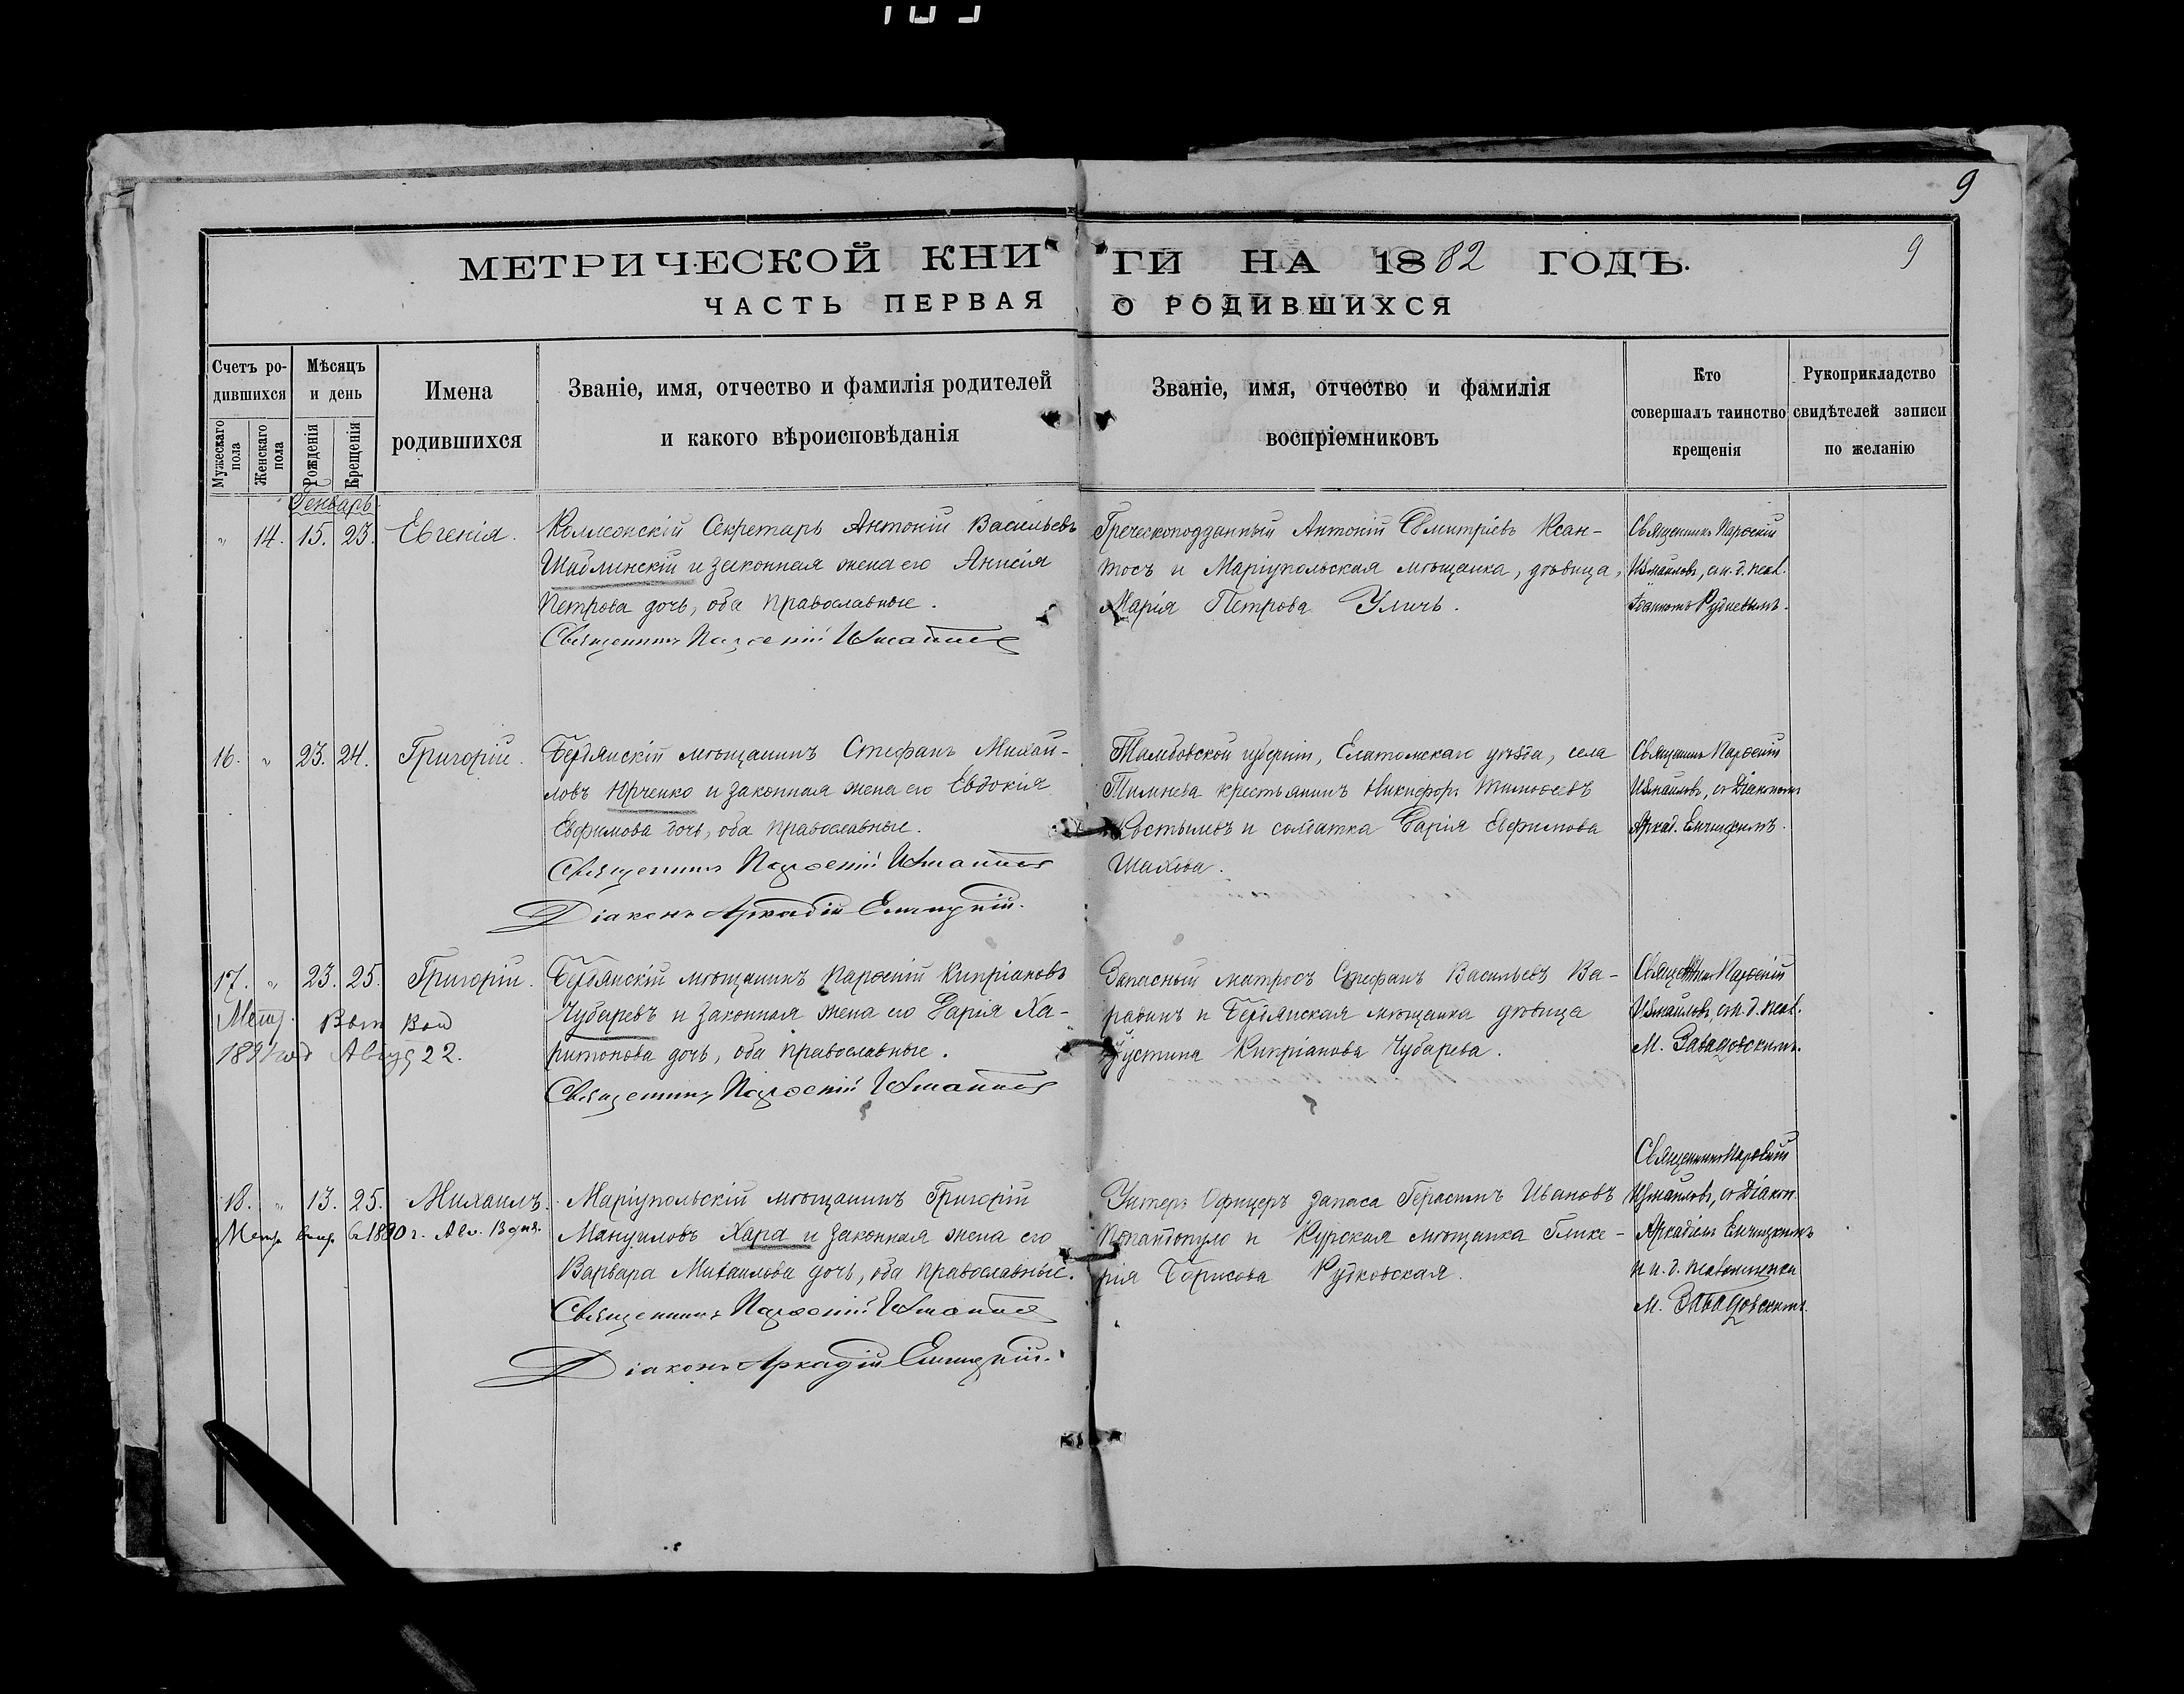 9
МЕТРИЧЕСКОЙ КНИГИ НА 1882 ГОДЪ.
9
ЧАСТЬ ПЕРВАЯ О РОДИВШИХСЯ
Счетъ родившихся
Мужескаго пола
Женскаго пола
Мѣсяцъ и день
Рожденія
Крещенія
Имена родившихся
Званіе, имя, отчество и фамилія родителей
и какого вѣроисповѣданія
Званіе, имя, отчество и фамилія
воспріемниковъ
Кто
совершалъ таинство
крещенія
Рукоприкладство
свидѣтелей записи
по желанію
Генварь
" 14. 15. 23. Евгенія.
Коллежскій Секретарь Антоній Васильевъ
Шидлинскій и законная жена его Анисія
Петрова дочь, оба православные.
Священникъ Парѳеній Измаиловъ
Греческоподданный Антоній Дмитріевъ Ксан-
тосъ и Маріупольская мѣщанка, дѣвица,
Марія Петрова Уличъ.
Священникъ Парѳеній
Измаиловъ, съ и. д. псал.
Іоанномъ Рудневымъ.
16. " 23. 24. Григорій.
Бердянскій мѣщанинъ Стефанъ Михай-
ловъ Юрченко и законная жена его Евдокія
Евфимова дочь, оба православные.
Священникъ Парѳеній Измаиловъ
Діаконъ Аркадій
Тамбовской губерніи, Елатомскаго уѣзда, села
крестьянинъ Никифоръ Тимоѳеевъ
Костылевъ и солдатка Дарія Евфимова
Шахова.
Священникъ Парѳеній
Измаиловъ, съ Діакономъ
Аркад.
17. " 23. 25. Григорій.
Метр. выд.
1891 год Авгус 22.
Бердянскій мѣщанинъ Парѳеній Кипріановъ
Чубаревъ и законная жена его Дарія Ха-
ритонова дочь, оба православные.
Священникъ Парѳеній Измаиловъ
Запасный матросъ Стефанъ Васильевъ Ва-
и Бердянская мѣщанка дѣвица
Іустина Кипріанова Чубарева.
Священникъ Парѳеній
Измаиловъ, съ и. д. псал.
М. Завадовскимъ.
18. " 13. 25. Михаилъ.
Метр. выд. в 1890 г. Авг. 13 дня.
Маріупольскій мѣщанинъ Григорій
Мануиловъ Хара и законная жена его
Варвара Михаилова дочь, оба православные.
Священникъ Парѳеній Измаиловъ
Діаконъ Аркадій
Унтеръ Офицеръ запаса Герасимъ Ивановъ
Попандопуло и Курская мѣщанка Глике-
рія Борисова Рудковская.
Священникъ Парѳеній
Измаиловъ, съ Діакон.
Аркадіемъ
и и. д. псаломщика
М. Завадовскимъ.